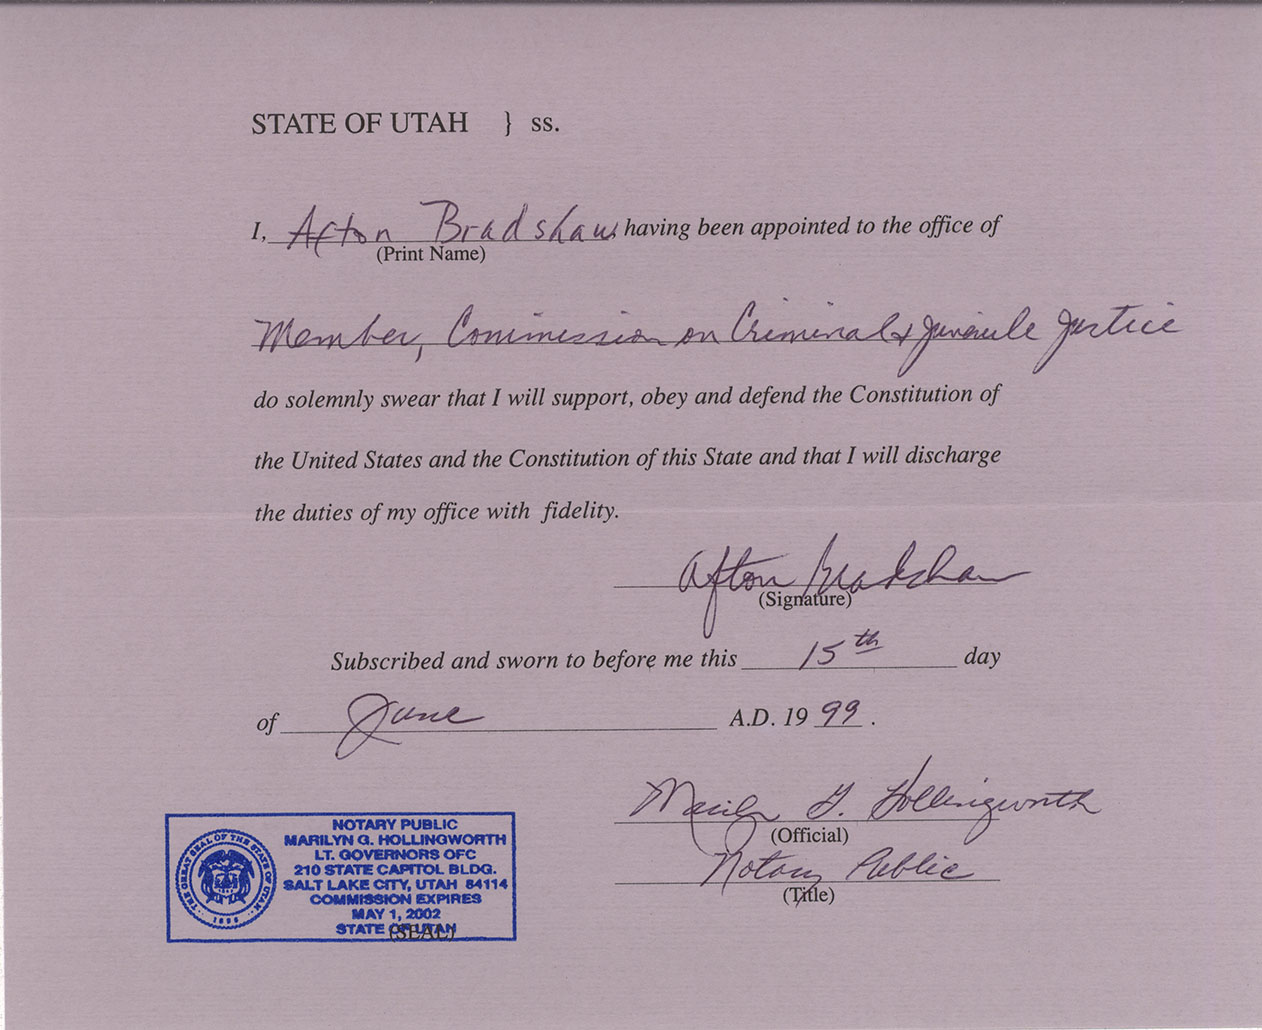 STATE OF UTAH } ss.
I, Afton Bradshaw, having been appointed to the office of
(Print Name)
Member, Commission on Criminal & Juvenile Justice
do solemnly swear that I will support, obey and defend the Constitution of
the United States and the Constitution of this State and that I will discharge
the duties of my office with fidelity.
Afton Bradshaw
(Signature)
Subscribed and sworn to before me this 15th day
of June A.D. 19 99.
Marilyn G. Hollingworth
(Official)
Notary Public
(Title)
THE GREAT SEAL OF THE STATE OF UTAH
1896
NOTARY PUBLIC
MARILYN G. HOLLINGWORTH
LT. GOVERNORS OFC
210 STATE CAPITOL BLDG.
SALT LAKE CITY, UTAH 84114
COMMISSION EXPIRES
MAY 1, 2002
STATE OF UTAH
(SEAL)